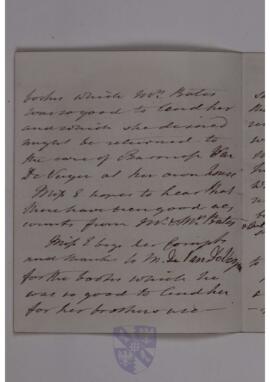 books which Mrs Bates
was so good to lend her
and which she desired
might be returned to
the care of Baroness Van
De Weyer at her own house
Miss E hopes to hear that
there have been good ac,
counts from Mr & Mrs Bates
Miss E begs her Compts
and thanks to M. de Van de Wey
for the books which he
was so good to lend her
for her brothers use —